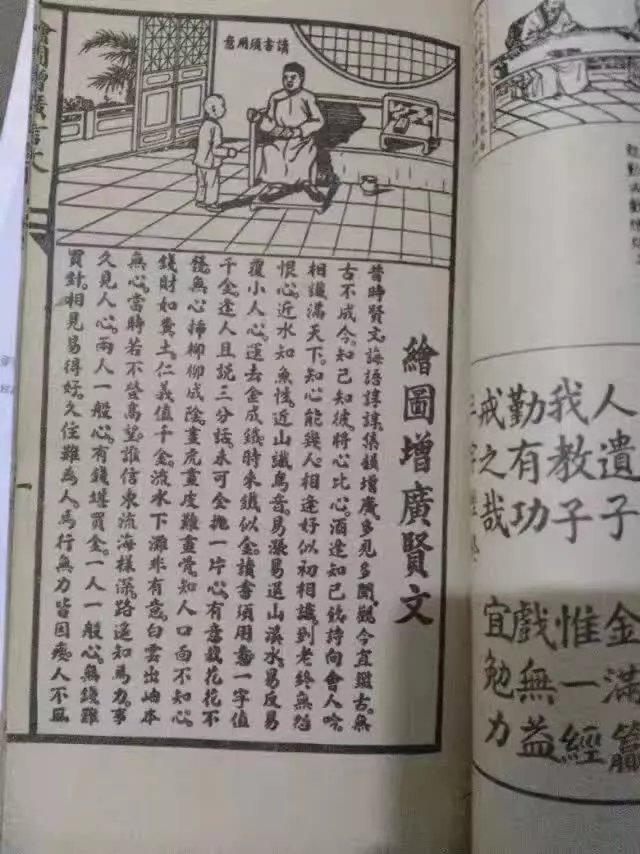 人遺子 金滿籯
我教子 惟一經
勤有功 戲無益
戒之哉 宜勉力
讀書須用意
繪圖增廣賢文
昔時賢文。誨語諄諄。集韻增廣。多見多聞。觀今宜鑑古。無
古不成今。知己知彼。將心比心。酒逢知己飲。詩向會人吟。
相識滿天下。知心能幾人。相逢好似初相識。到老終無怨
恨心。近水知魚性。近山識鳥音。易漲易退山溪水。易反易
覆小人心。運去金成鐵。時來鐵似金。讀書須用意。一字值
千金。逢人且說三分話。未可全拋一片心。有意栽花花不
發。無心插柳柳成陰。畫虎畫皮難畫骨。知人口面不知心。
錢財如糞土。仁義值千金。流水下灘非有意。白雲出岫本
無心。當時若不登高望。誰信東流海樣深。路遙知馬力。事
久見人心。兩人一般心。有錢堪買金。一人一般心。無錢難
買針。相見易得好。久住難為人。馬行無力皆因瘦。人不風